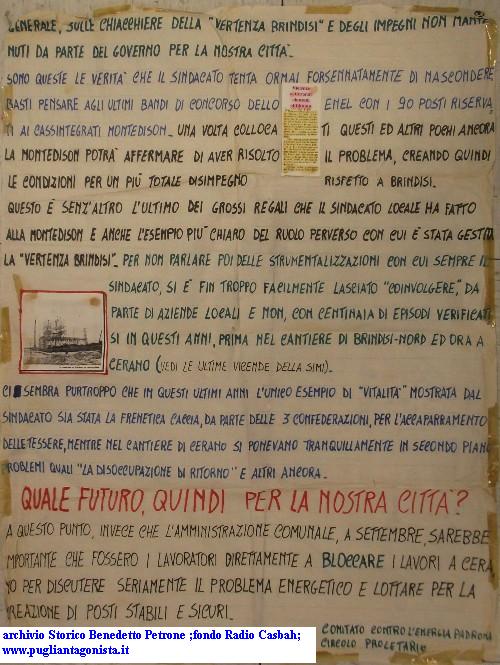 GENERALE, SULLE CHIACCHIERE DELLA "VERTENZA BRINDISI" E DEGLI IMPEGNI NON MANTE
NUTI DA PARTE DEL GOVERNO PER LA NOSTRA CITTA'.
SONO QUESTE LE VERITA' CHE IL SINDACATO TENTA ORMAI FORSENNATAMENTE DI NASCONDERE
BASTI PENSARE AGLI ULTIMI BANDI DI CONCORSO DELLO ENEL CON I 90 POSTI RISERVA
TI AI CASSINTEGRATI MONTEDISON. UNA VOLTA COLLOCA TI QUESTI ED ALTRI POCHI ANCORA
LA MONTEDISON POTRA' AFFERMARE DI AVER RISOLTO IL PROBLEMA, CREANDO QUINDI
LE CONDIZIONI PER UN PIU' TOTALE DISIMPEGNO RISPETTO A BRINDISI.
QUESTO E' SENZ'ALTRO L'ULTIMO DEI GROSSI REGALI CHE IL SINDACATO LOCALE HA FATTO
ALLA MONTEDISON E ANCHE L'ESEMPIO PIU' CHIARO DEL RUOLO PERVERSO CON CUI E' STATA GESTITA
LA "VERTENZA BRINDISI". PER NON PARLARE POI DELLE STRUMENTALIZZAZIONI CON CUI SEMPRE IL
SINDACATO, SI E' FIN TROPPO FACILMENTE LASCIATO "COINVOLGERE", DA
PARTE DI AZIENDE LOCALI E NON, CON CENTINAIA DI EPISODI VERIFICATI
SI IN QUESTI ANNI, PRIMA NEL CANTIERE DI BRINDISI-NORD ED ORA A
CERANO (VEDI LE ULTIME VICENDE DELLA SIMI).
CI SEMBRA PURTROPPO CHE IN QUESTI ULTIMI ANNI L'UNICO ESEMPIO DI "VITALITA'" MOSTRATA DAL
SINDACATO SIA STATA LA FRENETICA CACCIA, DA PARTE DELLE 3 CONFEDERAZIONI, PER L'ACCAPARRAMENTO
DELLE TESSERE, MENTRE NEL CANTIERE DI CERANO SI PONEVANO TRANQUILLAMENTE IN SECONDO PIANO
PROBLEMI QUALI "LA DISOCCUPAZIONE DI RITORNO" E ALTRI ANCORA.
QUALE FUTURO, QUINDI PER LA NOSTRA CITTA'?
A QUESTO PUNTO, INVECE CHE L'AMMINISTRAZIONE COMUNALE, A SETTEMBRE, SAREBBE
IMPORTANTE CHE FOSSERO I LAVORATORI DIRETTAMENTE A BLOCCARE I LAVORI A CERA
NO PER DISCUTERE SERIAMENTE IL PROBLEMA ENERGETICO E LOTTARE PER LA
CREAZIONE DI POSTI STABILI E SICURI.
COMITATO CONTRO L'ENERGIA PADRONA
CIRCOLO PROLETARIO
archivio Storico Benedetto Petrone ;fondo Radio Casbah;
www.pugliantagonista.it